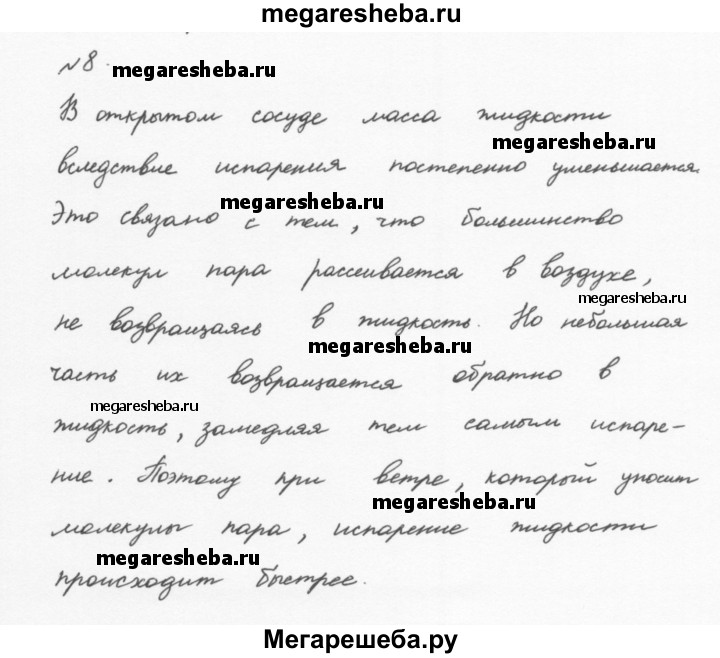 megaresheba.ru
№8. megaresheba.ru
В открытом сосуде масса жидкости
megaresheba.ru
вследствие испарения постепенно уменьшается.
megaresheba.ru
Это связано с тем, что большинство
молекул пара рассеивается в воздухе,
megaresheba.ru
не возвращаясь в жидкость. Но небольшая
megaresheba.ru
часть их возвращается обратно в
megaresheba.ru
жидкость, замедляя тем самым испаре-
ние. Поэтому при ветре, который уносит
megaresheba.ru
молекулы пара, испарение жидкости
megaresheba.ru
происходит быстрее.
Мегарешеба.ру